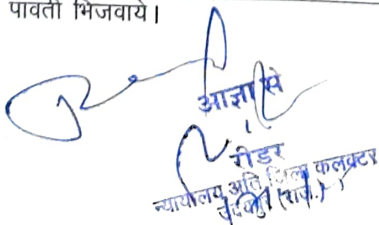 पावती भिजवाये।
आज्ञा से
रीडर
न्यायालय अति जिला कलक्टर
(राज.)